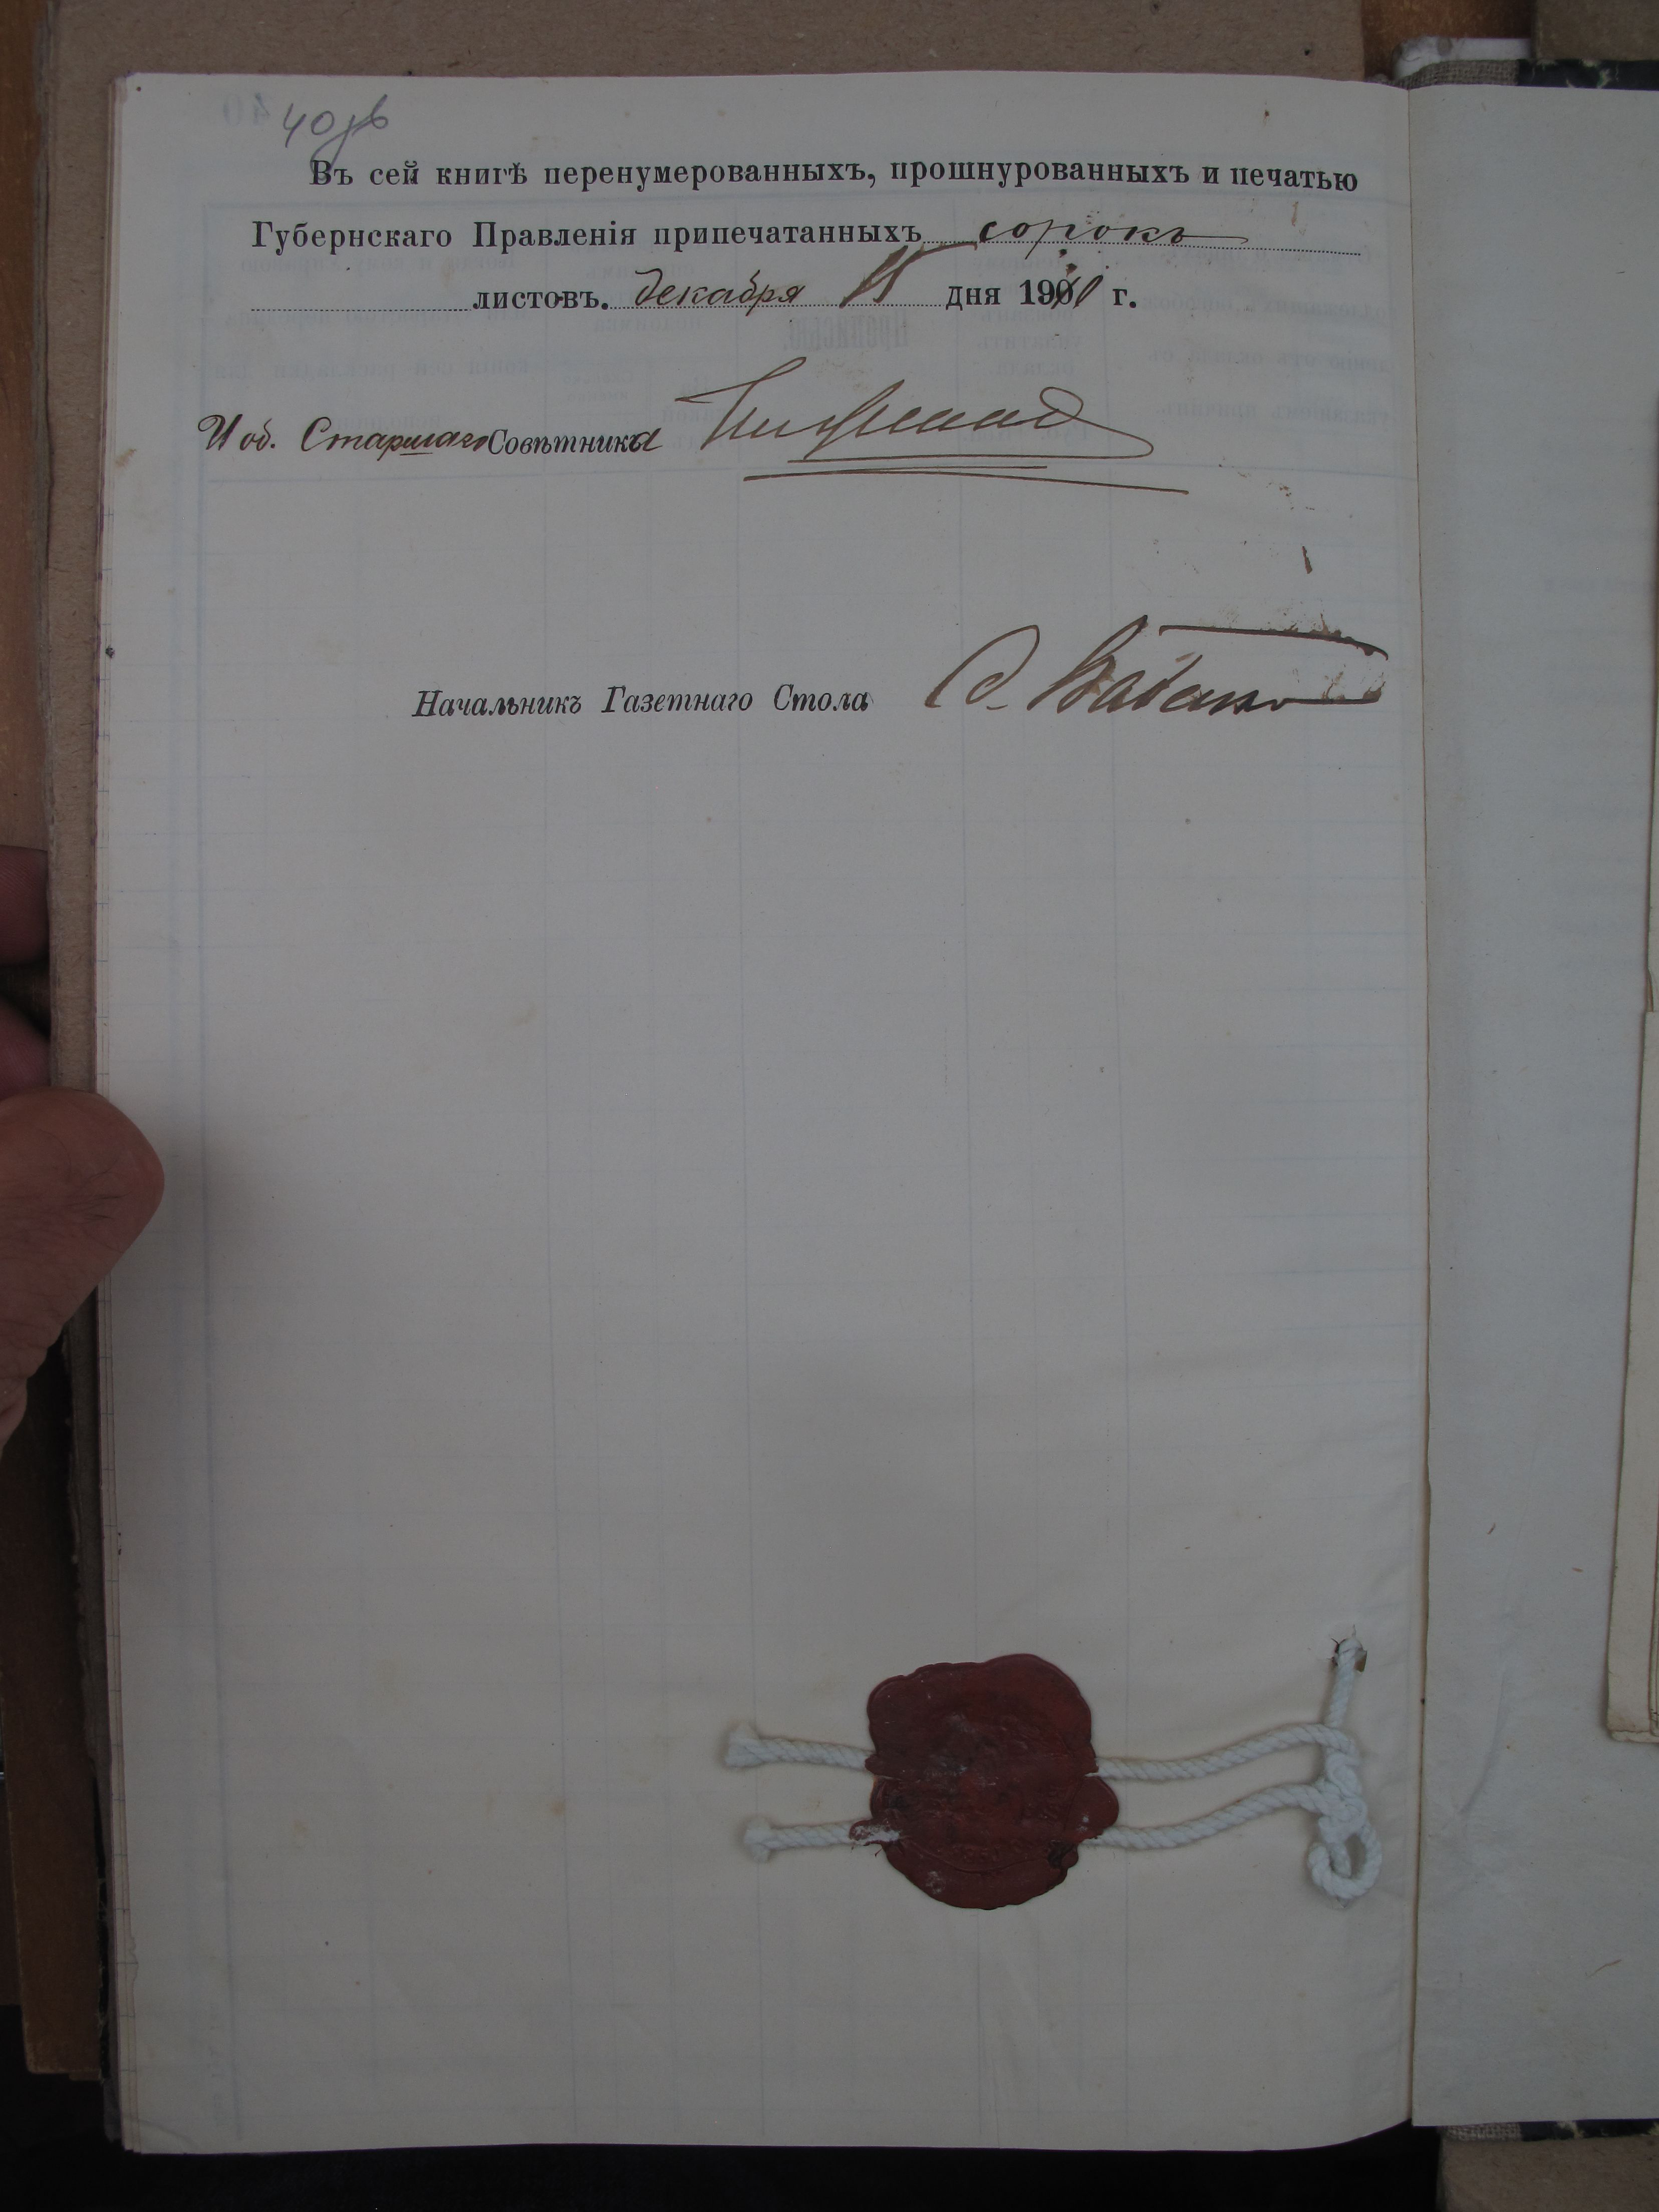 40 об
Въ сей книгѣ перенумерованныхъ, прошнурованныхъ и печатью
Губернскаго Правленія припечатанныхъ сорокъ
листовъ. декабря 15 дня 1910 г.
И об. Старшаго Совѣтника
Начальникъ Газетнаго Стола